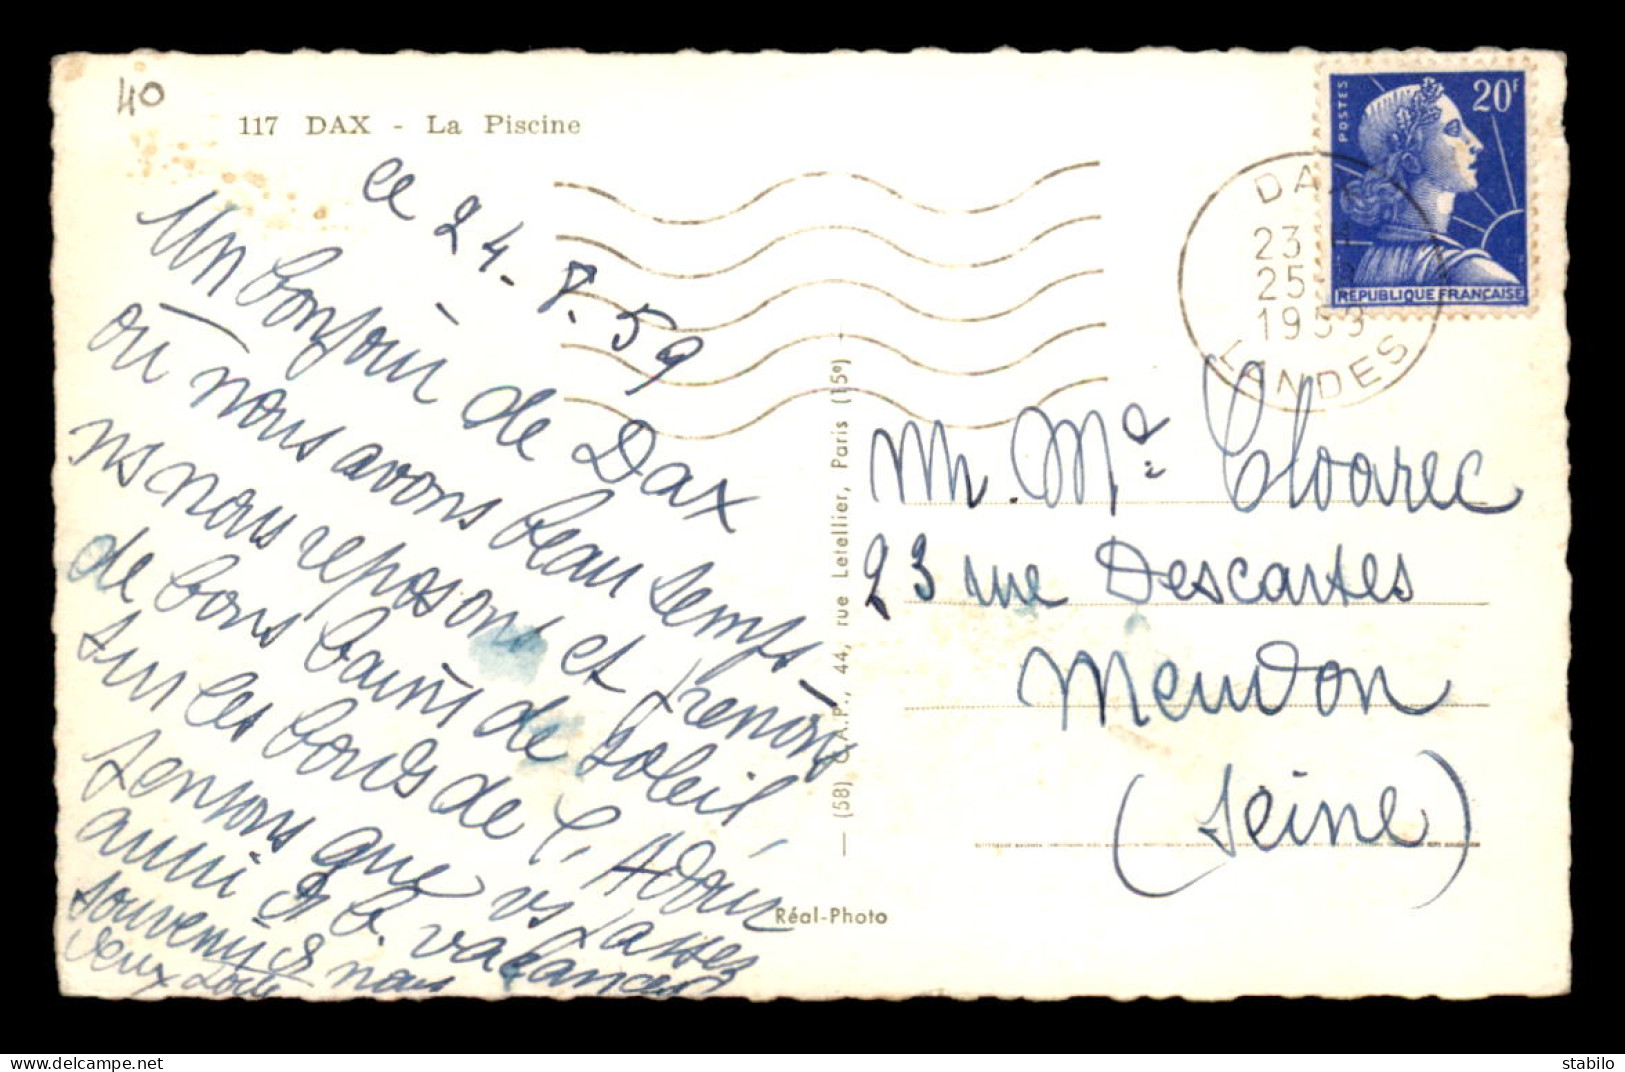 40
117 DAX - La Piscine
ce 24-8.59
Un bonjour de Dax
où nous avons beau temps
ns nous reposons et prenons
de bons bains de soleil
sur les bords de l'Adour
Pensons que vs passez
aussi de b. vacances
souvenirs de nous
deux
POSTES
20F
REPUBLIQUE FRANÇAISE
DAX
23 H
25
1959
LANDES
M. Me Cloarec
23 rue Descartes
Meudon
(Seine)
(58) C.A.P., 44, rue Letellier, Paris (15e)
Réal-Photo
delcampe.net
stabilo